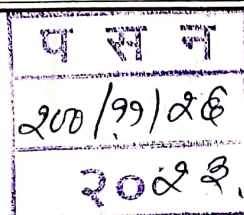 प स न
२००/११/२६
२०२३